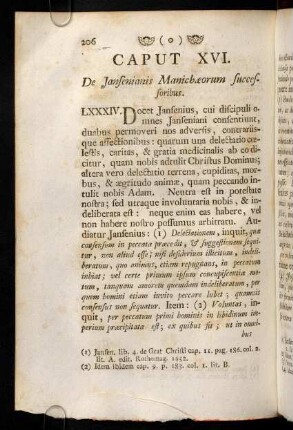 206 ( o )
CAPUT XVI.
De Jansenianis Manichæorum succes-
soribus.
LXXXIV. Docet Jansenius, cui discipuli o-
mnes Janseniani consentiunt,
duabus permoveri nos adversis, contrariis-
que affectionibus: quarum una delectatio cœ-
lestis, caritas, & gratia medicinalis ab eo di-
citur, quam nobis adtulit Christus Dominus;
altera vero delectatio terrena, cupiditas, mor-
bus, & ægritudo animæ, quam peccando in-
tulit nobis Adam. Neutra est in potestate
nostra; sed utraque involuntaria nobis, & in-
deliberata est: neque enim eas habere, vel
non habere nostro possumus arbitratu. Au-
diatur Jansenius: (1) Delectationem, inquit, quæ
consensum in peccata præcedit, & suggestionem sequi-
tur, non aliud esse; nisi desiderium illicitum, inde-
liberatum, quo animus, etiam repugnans, in peccatum
inhiat; vel certe primum ipsum concupiscentiæ mo-
tum, tanquam amorem quemdam indeliberatum, per
quem homini etiam invito peccare lubet; quamvis
consensus non sequatur. Item: (2) Voluntas, in-
quit, per peccatum primi hominis in libidinum im-
perium præcipitata est; ex quibus fit; ut in omni-
bus
(1) Jansen. lib. 4. de Grat Christi cap. 11. pag. 186. col. 2.
lit. A. edit. Rothomag. 1652.
(2) Idem ibidem cap. 9. p. 182. col. 1. lit. B.